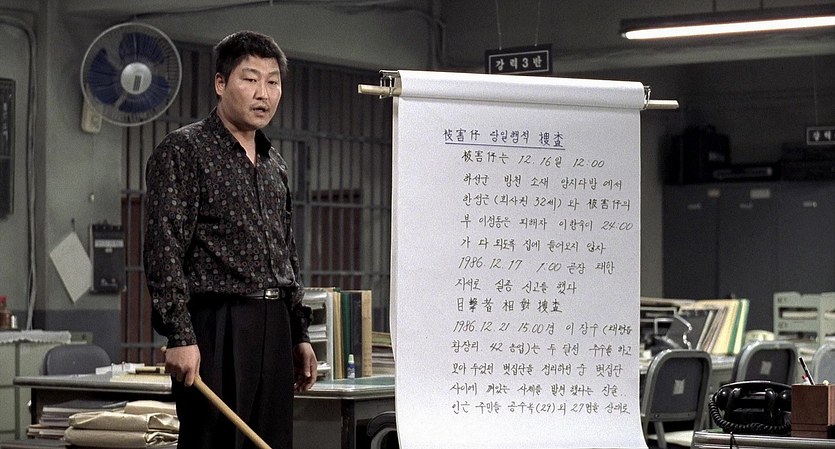 강력3반
被害者 당일행적 搜査
被害者는 12.16일 12:00
화산군 방천 소재 암시다방에서
한성근(회사원 32세)와 被害者의
부 이성동은 피해자 이향숙이 24:00
가 다 되도록 집에 들어오지 않자
1986.12.17 1:00 곧장 태안
지서로 실종 신고를 했다
目擊者 相對 搜査
1986.12.21 15:00경 이 장수(태안읍
황장리 42 농업)는 두 달전 수수를 하고
모아 두었던 볏짚단을 정리하던 중 볏짚단
사이에 껴있는 사체를 발견 했다는 진술..
인근 주민들 공수옥(29) 외 27명을 상대로